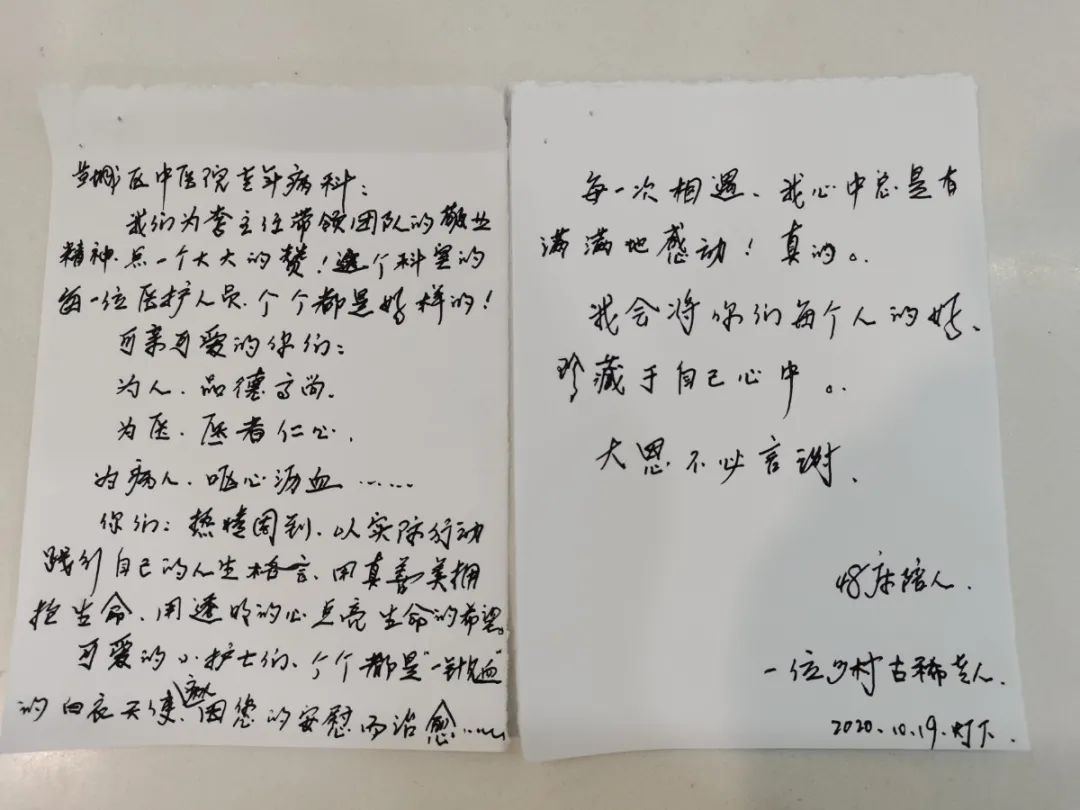 城区中医院老年病科：
我们为李主任带领团队的敬业
精神.点一个大大的赞！这个科室的
每一位医护人员.个个都是好样的！
可亲可爱的你们：
为人.品德高尚.
为医.医者仁心.
为病人.呕心沥血……
你们：热情周到.以实际行动
践行自己的人生格言、用真善美拥
抱生命、用透明的心点亮生命的希望。
可爱的小护士们、个个都是“一针见血”
的白衣天使、病人因您的安慰而治愈……
每一次相遇、我心中总是有
满满地感动！真的。
我会将你们每个人的好、
珍藏于自己心中。
大恩不必言谢.
48床陪人.
一位乡村古稀老人.
2020.10.19.灯下.